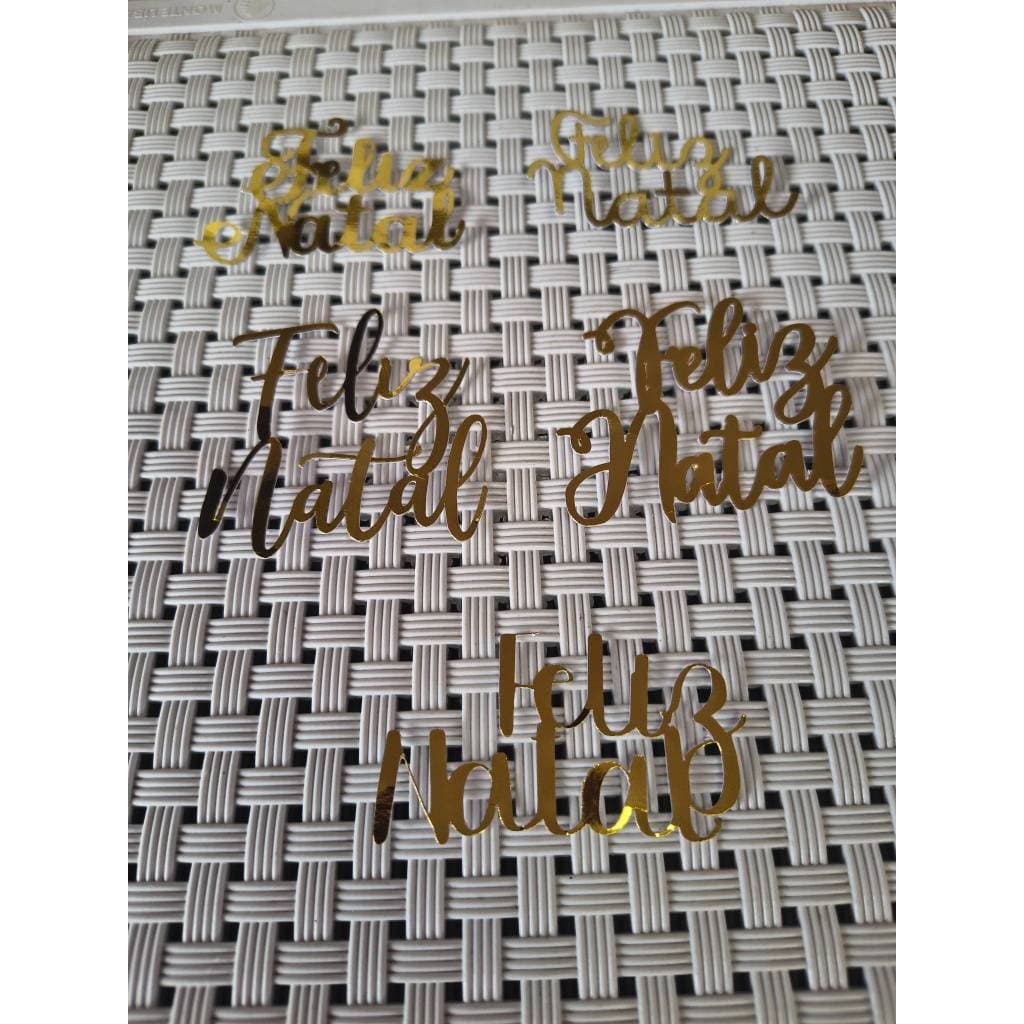 MONTEUSA
Feliz
Natal
Feliz
Natal
Feliz
Natal
Feliz
Natal
Feliz
Natal